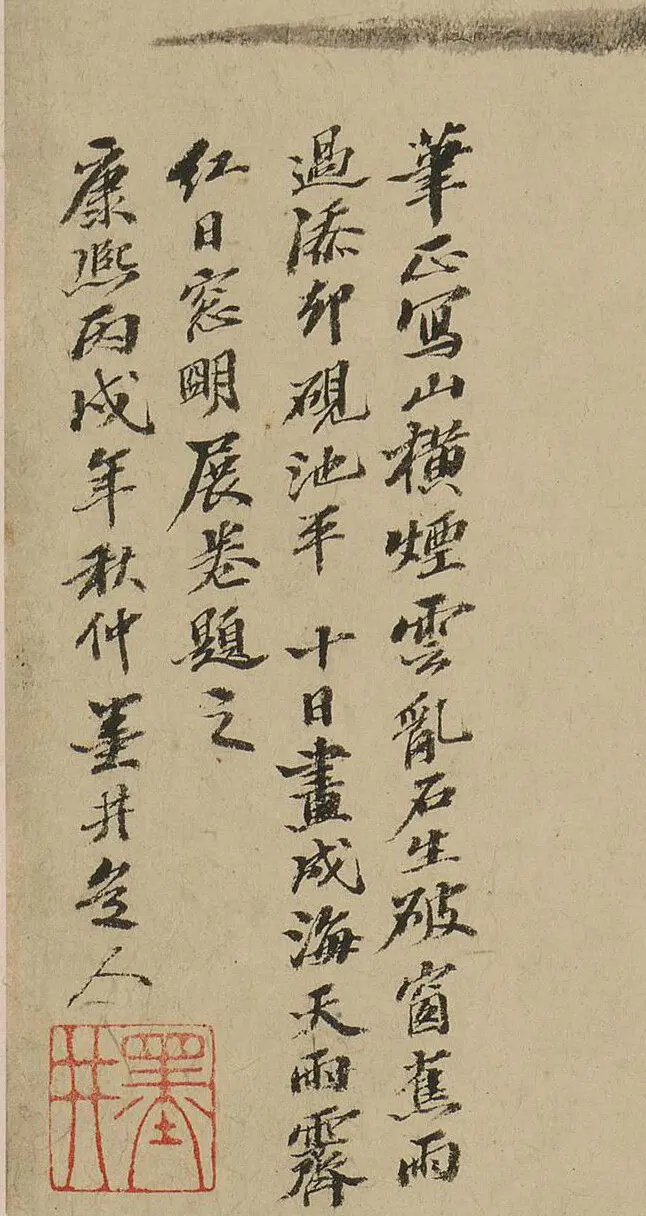 筆正寫山橫煙雲亂石生破窗蕉雨
過添却硯池平 十日畫成海天雨霽
紅日窓明展卷題之
康熙丙戌年秋仲墨井道人
墨井